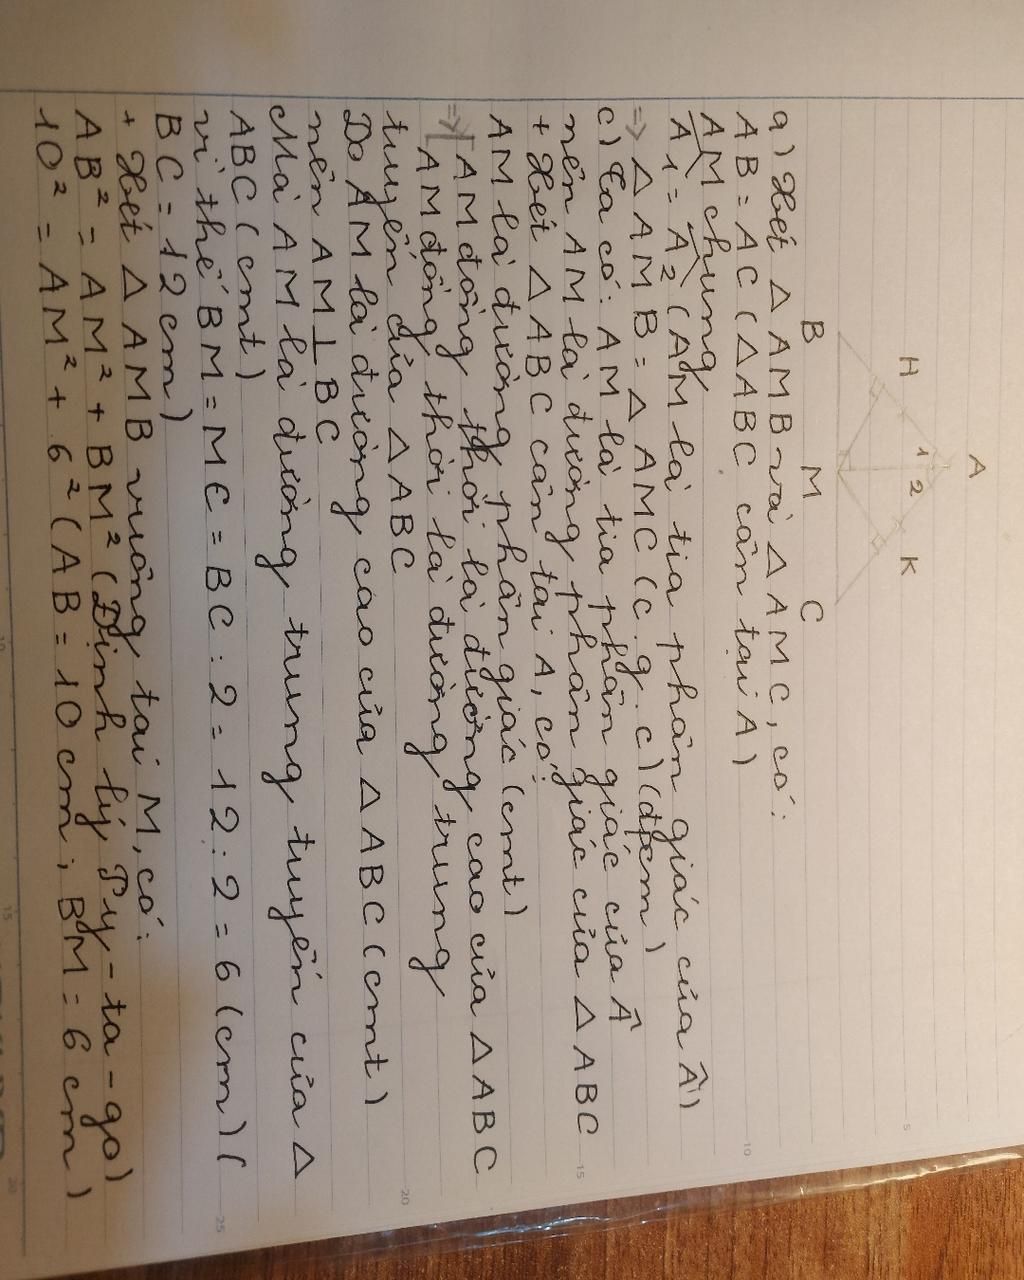 A
H
1
2
K
B
M
C
a) Xét Δ AMB và Δ AMC, có:
AB = AC (Δ ABC cân tại A)
AM chung
A1 = A2 (AM là tia phân giác của Â)
=> Δ AMB = Δ AMC (c.g.c) (đpcm)
c) Ta có: AM là tia phân giác của Â
nên AM là đường phân giác của Δ ABC
+ Xét Δ ABC cân tại A, có:
AM là đường phân giác (cmt)
=> [AM đồng thời là đường cao của Δ ABC
AM đồng thời là đường trung
tuyến của Δ ABC
Do AM là đường cao của Δ ABC (cmt)
nên AM ⊥ BC
Mà AM là đường trung tuyến của Δ
ABC (cmt)
vì thế BM = MC = BC : 2 = 12 : 2 = 6 (cm) (
BC = 12 cm)
+ Xét Δ AMB vuông tại M, có:
AB² = AM² + BM² (Định lý Py-ta-go)
10² = AM² + 6² (AB = 10 cm; BM = 6 cm)
5
10
15
20
25
10
15
20